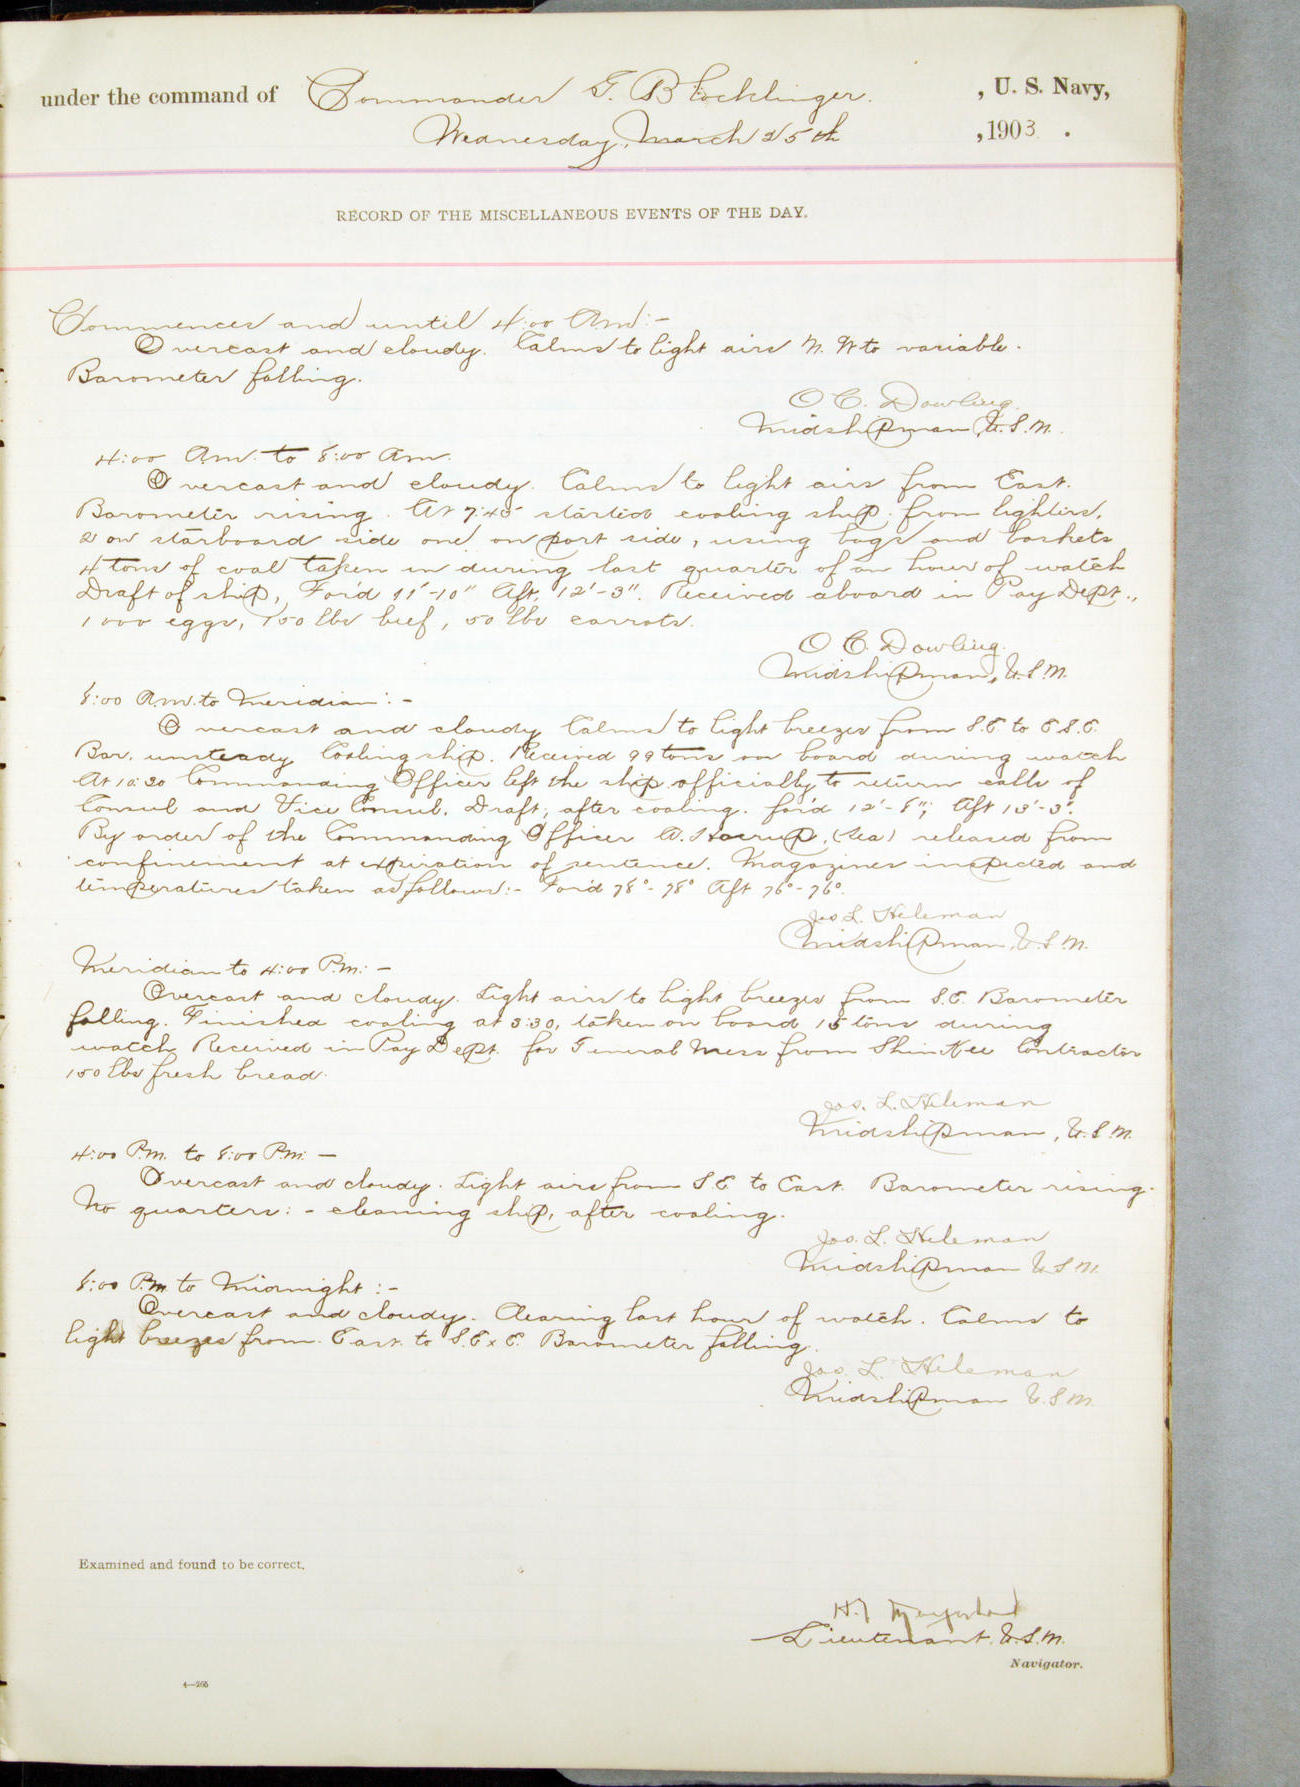 under the command of Commander G. Blocklinger. , U. S. Navy,
Wednesday, March 25th , 1903 .
RECORD OF THE MISCELLANEOUS EVENTS OF THE DAY.
Commences and until 4:00 Am:-
Overcast and cloudy. Calms to light airs N. W to variable.
Barometer falling.
O C. Dowling.
Midshipman, U.S.N.
4:00 Am. to 8:00 Am.
Overcast and cloudy. Calms to light airs from East.
Barometer rising. At 7:45 started coaling ship from lighters,
2 on starboard side one on port side, using bags and baskets
4 tons of coal taken in during last quarter of an hour of watch
Draft of ship, For'd 11'-10" Aft, 12'-3". Received aboard in Pay Dept.,
1000 eggs, 150 lbs beef, 50 lbs carrots.
O C. Dowling.
Midshipman, U.S.N.
8:00 Am. to Meridian:-
Overcast and cloudy Calms to light breezes from S.E to E.S.E.
Bar. unsteady Coaling ship. Received 99 tons on board during watch
At 10:30 Commanding Officer left the ship officially to return calls of
Consul and Vice Consul. Draft, after coaling. for'd 12'-8"; Aft 13'-3".
By order of the Commanding Officer A. (Sea) released from
confinement at expiration of sentence. Magazines inspected and
temperatures taken as follows:- For'd 78°-78° Aft 76°-76°.
Jos L. Hileman
Midshipman, U.S.N.
Meridian to 4:00 P.m:-
Overcast and cloudy. Light airs to light breezes from S.E. Barometer
falling. Finished coaling at 3:30, taken on board 15 tons during
watch Received in Pay Dept. for General Mess from Shin Kee Contractor
150 lbs fresh bread.
Jos. L. Hileman
Midshipman, U.S.N.
4:00 P.m. to 8:00 P.m:-
Overcast and cloudy. Light airs from S.E to East. Barometer rising.
No quarters:- cleaning ship, after coaling.
Jos. L. Hileman
Midshipman U.S.N.
8:00 P.m to Midnight:-
Overcast and cloudy. Clearing last hour of watch. Calms to
light breezes from East. to S.E x E. Barometer falling.
Jos. L. Hileman
Midshipman U.S.N.
Examined and found to be correct.
Lieutenant. U.S.N.
Navigator.
4—265